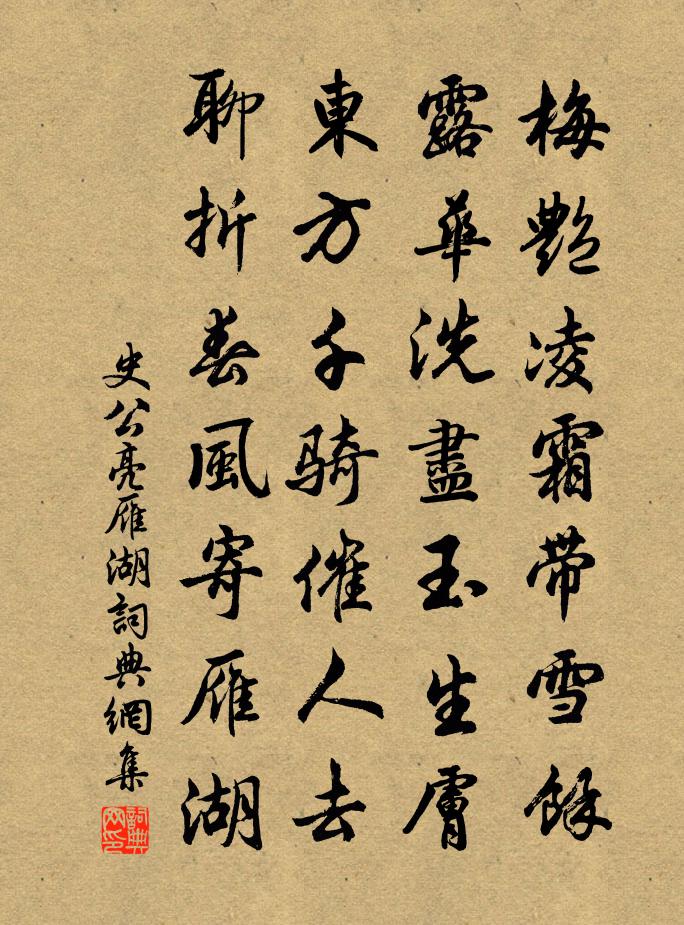 梅艷凌霜帶雪餘
露華洗盡玉生膚
東方千騎催人去
聊折春風寄雁湖
史公亮雁湖詞典網集
詞典网印